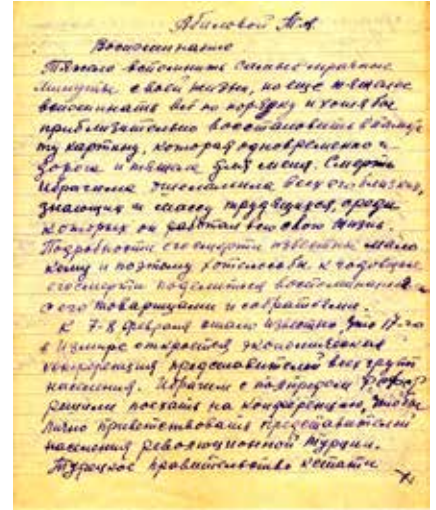 Абиловой Т.А.
Воспоминание
Тяжело вспомнить самые мрачные
минуты своей жизни, но еще тяжелее
вспоминать всё по порядку и хотя бы
приблизительно восстановить в памяти
ту картину, которая одновременно и
дорога и тяжела для меня. Смерть
Ибрагима ошеломила всех его близких,
знающих и массу трудящихся, среди
которых он работал всю свою жизнь.
Подробности его смерти известны мало
кому и поэтому хотелось бы к годовщине
его смерти поделиться воспоминанием
с его товарищами и собратьями.
К 7-8 февраля стало известно, что 17-го
в Измире откроется экономическая
конференция представителей всех групп
населения. Ибрагим с полпредом РСФСР
решили поехать на конференцию, чтобы
лично приветствовать представителей
населения революционной Турции.
Турецкое правительство кстати